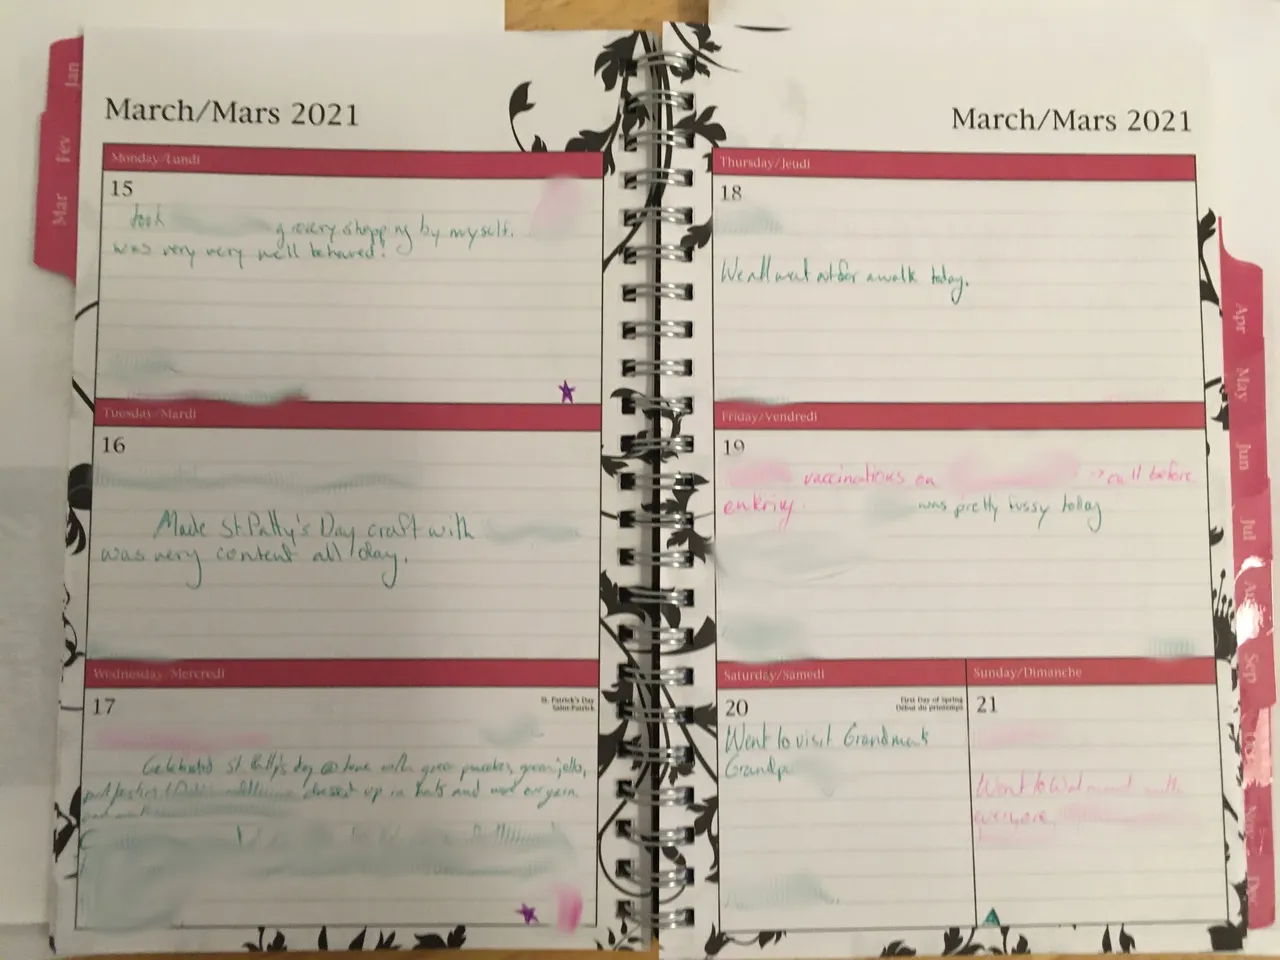 Jan
Fev
Mar
March/Mars 2021
Monday/Lundi
15
took grocery shopping by myself.
was very very well behaved!
Tuesday/Mardi
16
Made St. Patty's Day craft with
was very content all day.
Wednesday/Mercredi
17
St. Patrick's Day
Saint-Patrick
Celebrated St Patty's day @ home with green pancakes, green jello,
dressed up in hats and
March/Mars 2021
Thursday/Jeudi
18
We all went out for a walk today.
Friday/Vendredi
19
vaccinations on → call before
entering. was pretty fussy today
Saturday/Samedi
20
First Day of Spring
Début du printemps
Went to visit Grandma &
Grandpa
Sunday/Dimanche
21
Went to Walmart with
everyone,
Apr
May
Jun
Jul
Aug
Sep
Oct
Nov
Dec